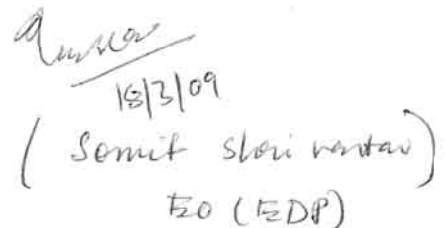 18/3/09
( Somit Shrivastav )
EO (EDP)